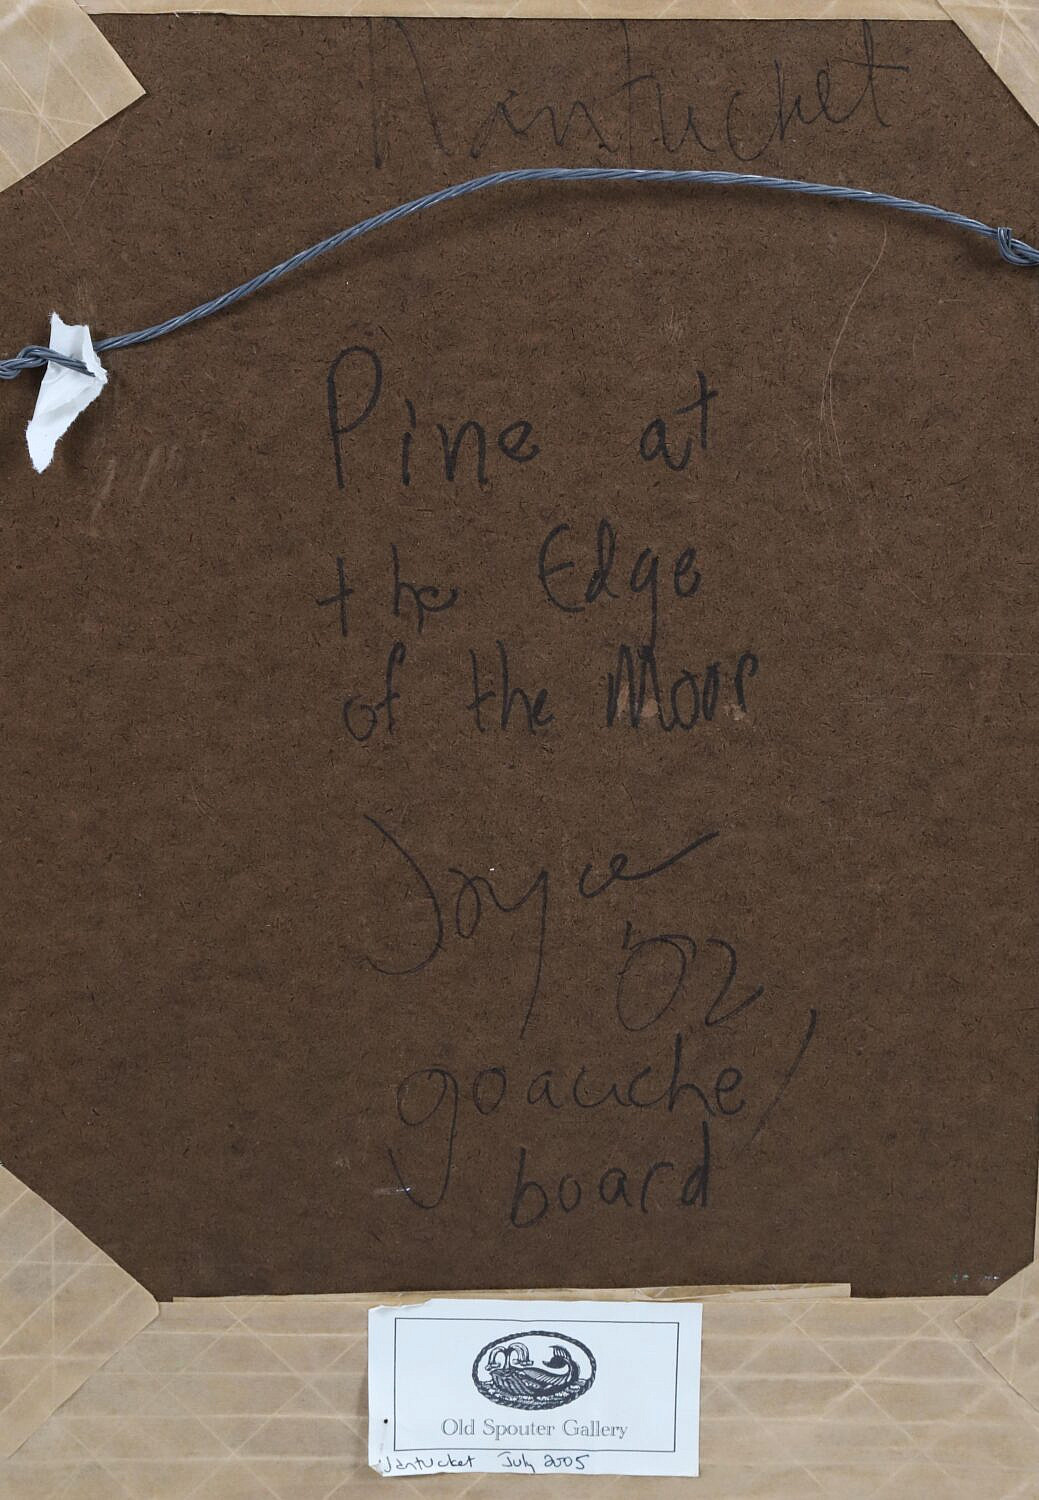 Nantucket
Pine at
the Edge
of the Moor
Joyce
'02
gouache/
board
Old Spouter Gallery
Nantucket July 2005